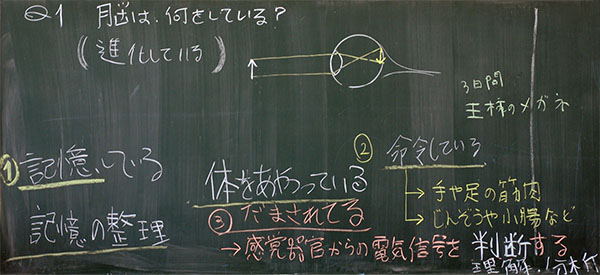 Q1 脳は、何をしている?
(進化している)
3日間
王様のメガネ
① 記憶している
② 命令している
体をあやつっている
→手や足の筋肉
→じんぞうや小腸など
③ だまされてる
記憶の整理
→感覚器官からの電気信号を判断する
理解 分析